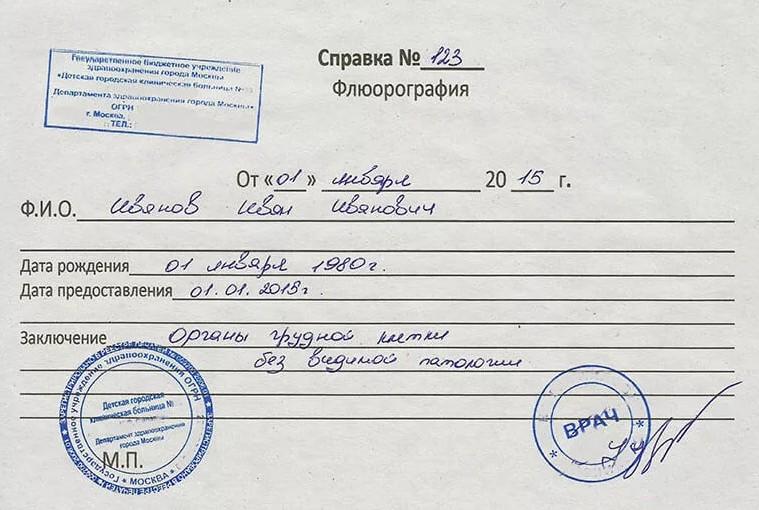 Государственное бюджетное учреждение
здравоохранения города Москвы
«Детская городская клиническая больница №
Департамента здравоохранения города Москвы»
ОГРН
г. Москва,
ТЕЛ.:
Справка № 123
Флюорография
От «01» января 2015 г.
Ф.И.О. Иванов Иван Иванович
Дата рождения 01 января 1980г.
Дата предоставления 01.01.2015г.
Заключение Органы грудной клетки
без видимой патологии
Государственное учреждение здравоохранения ОГРН
* МОСКВА *
Детская городская
клиническая больница №
Департамент здравоохранения
города Москвы
М.П.
ВРАЧ